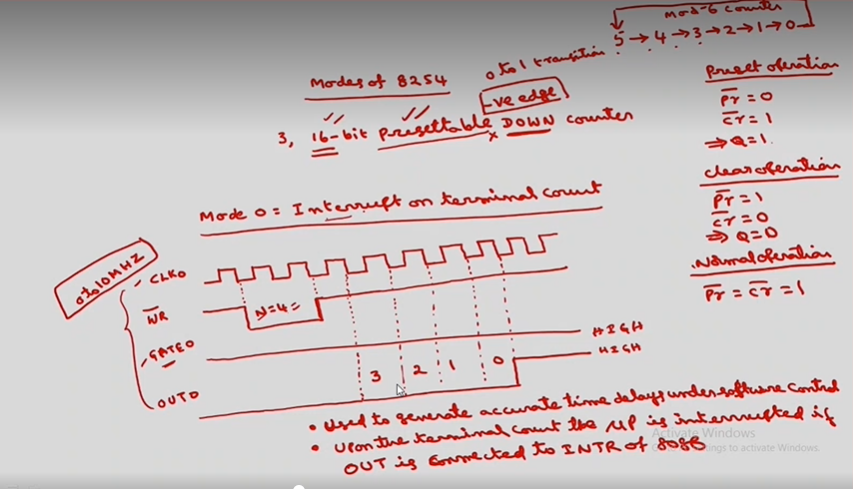 Mod-6 Counter
5 → 4 → 3 → 2 → 1 → 0
0 to 1 transition
Modes of 8254
-ve edge
3, 16-bit presettable DOWN counter
Preset operation
Pr = 0
Cr = 1
⇒ Q = 1
clear operation
Pr = 1
Cr = 0
⇒ Q = 0
Normal operation
Pr = Cr = 1
Mode 0 = Interrupt on terminal count
0 to 10 MHZ
CLK0
WR
N=4=
GATE0
HIGH
HIGH
3 2 1 0
OUT0
• Used to generate accurate time delays under software control
• Upon the terminal count the μP is interrupted if
OUT is connected to INTR of 8086
Activate Windows
Settings to activate Windows.